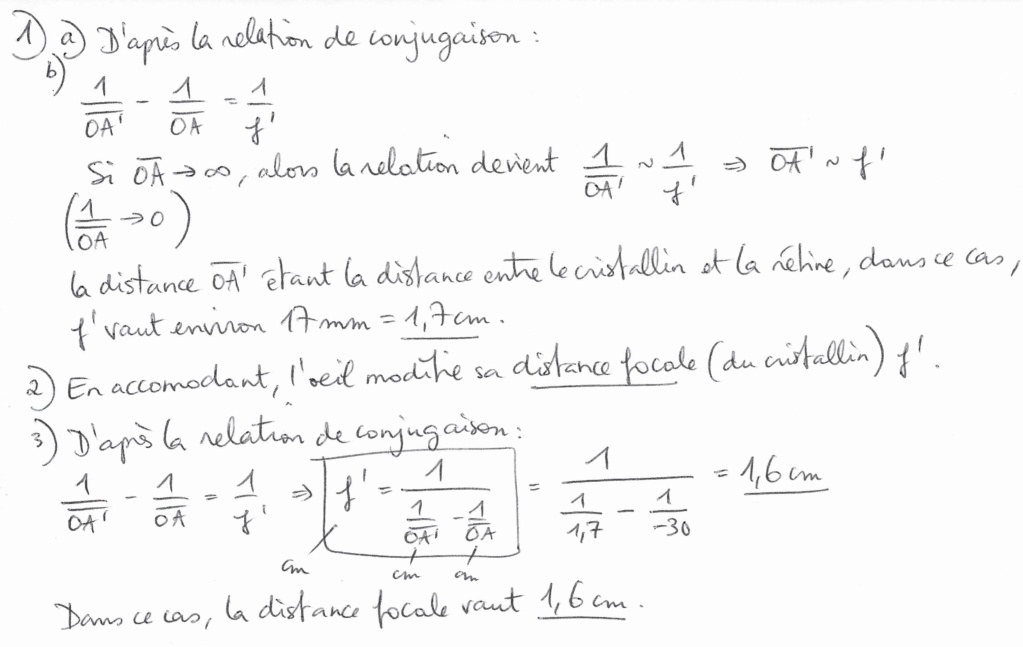 1) a) D'après la relation de conjugaison :
b)
1/OA' - 1/OA = 1/f'
Si OA → ∞, alors la relation devient 1/OA' ~ 1/f' ⇒ OA' ~ f'
(1/OA → 0)
la distance OA' étant la distance entre le cristallin et la rétine, dans ce cas,
f' vaut environ 17 mm = 1,7 cm.
2) En accomodant, l'oeil modifie sa distance focale (du cristallin) f'.
3) D'après la relation de conjugaison :
1/OA' - 1/OA = 1/f' ⇒ f' = 1/(1/OA' - 1/OA) = 1/(1/1,7 - 1/-30) = 1,6 cm
cm cm cm
Dans ce cas, la distance focale vaut 1,6 cm.